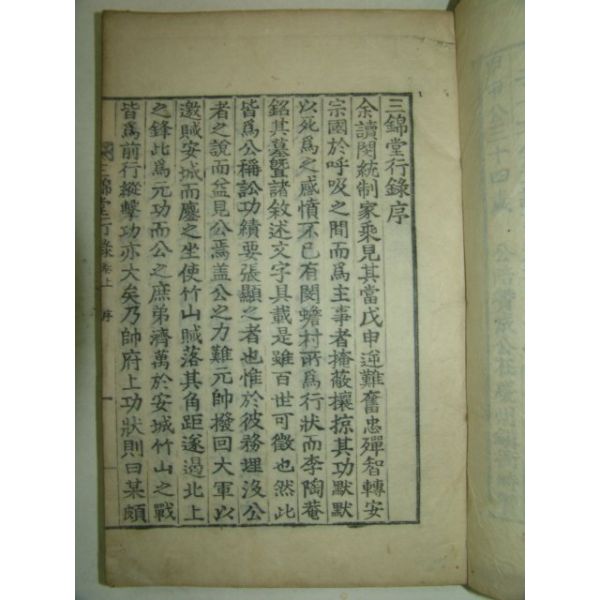 三錦堂行錄序
余讀閔統制家乘見其當戊申逆難奮忠殫智轉安
宗國於呼吸之間而爲主事者掩蔽攘掠其功默默
以死爲之感憤不已有閔蟾村所爲行狀而李陶菴
銘其墓曁諸敘述文字具載是雖百世可徵也然此
皆爲公稱訟功績要張顯之者也惟於彼務埋沒公
者之說而益見公焉盖公之力難元帥撥回大軍以
邀賊安城而鏖之坐使竹山賊落其角距遂遏北上
之鋒此爲元功而公之庶弟濟萬於安城竹山之戰
皆爲前行縱擊功亦大矣乃帥府上功狀則曰某頗
三錦堂行錄 卷上 序 一